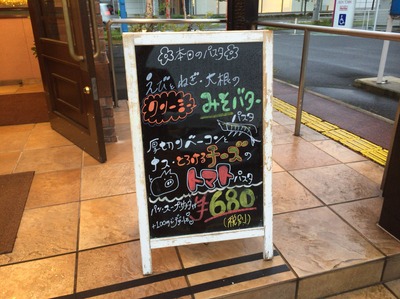 本日のパスタ
えびとねぎ、大根の
クリーミー
みそバター
パスタ
厚切りベーコンと
ナス・とろけるチーズの
トマトパスタ
¥680
(税別)